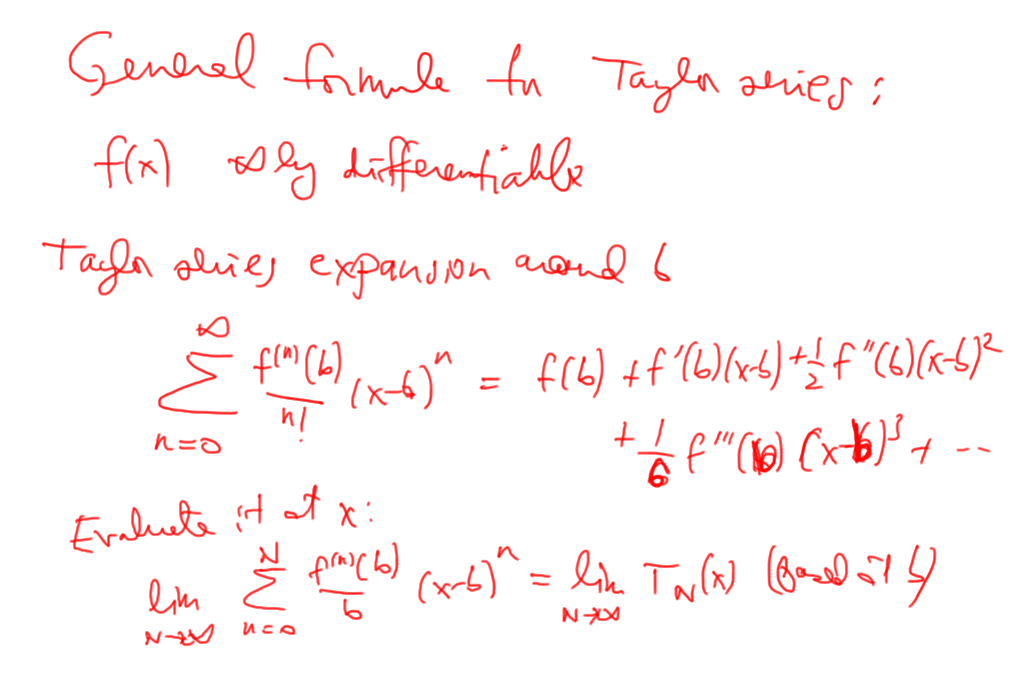 General formule for Taylor series:
f(x) ∞ly differentiable
Taylor series expansion around b
∑_{n=0}^{∞} f^{(n)}(b)/n! (x-b)^n = f(b) + f'(b)(x-b) + 1/2 f''(b)(x-b)^2
+ 1/6 f'''(b) (x-b)^3 + --
Evaluate it at x:
lim_{N→∞} ∑_{n=0}^{N} f^{(n)}(b)/b (x-b)^n = lim_{N→∞} T_N(x) (Based at b)